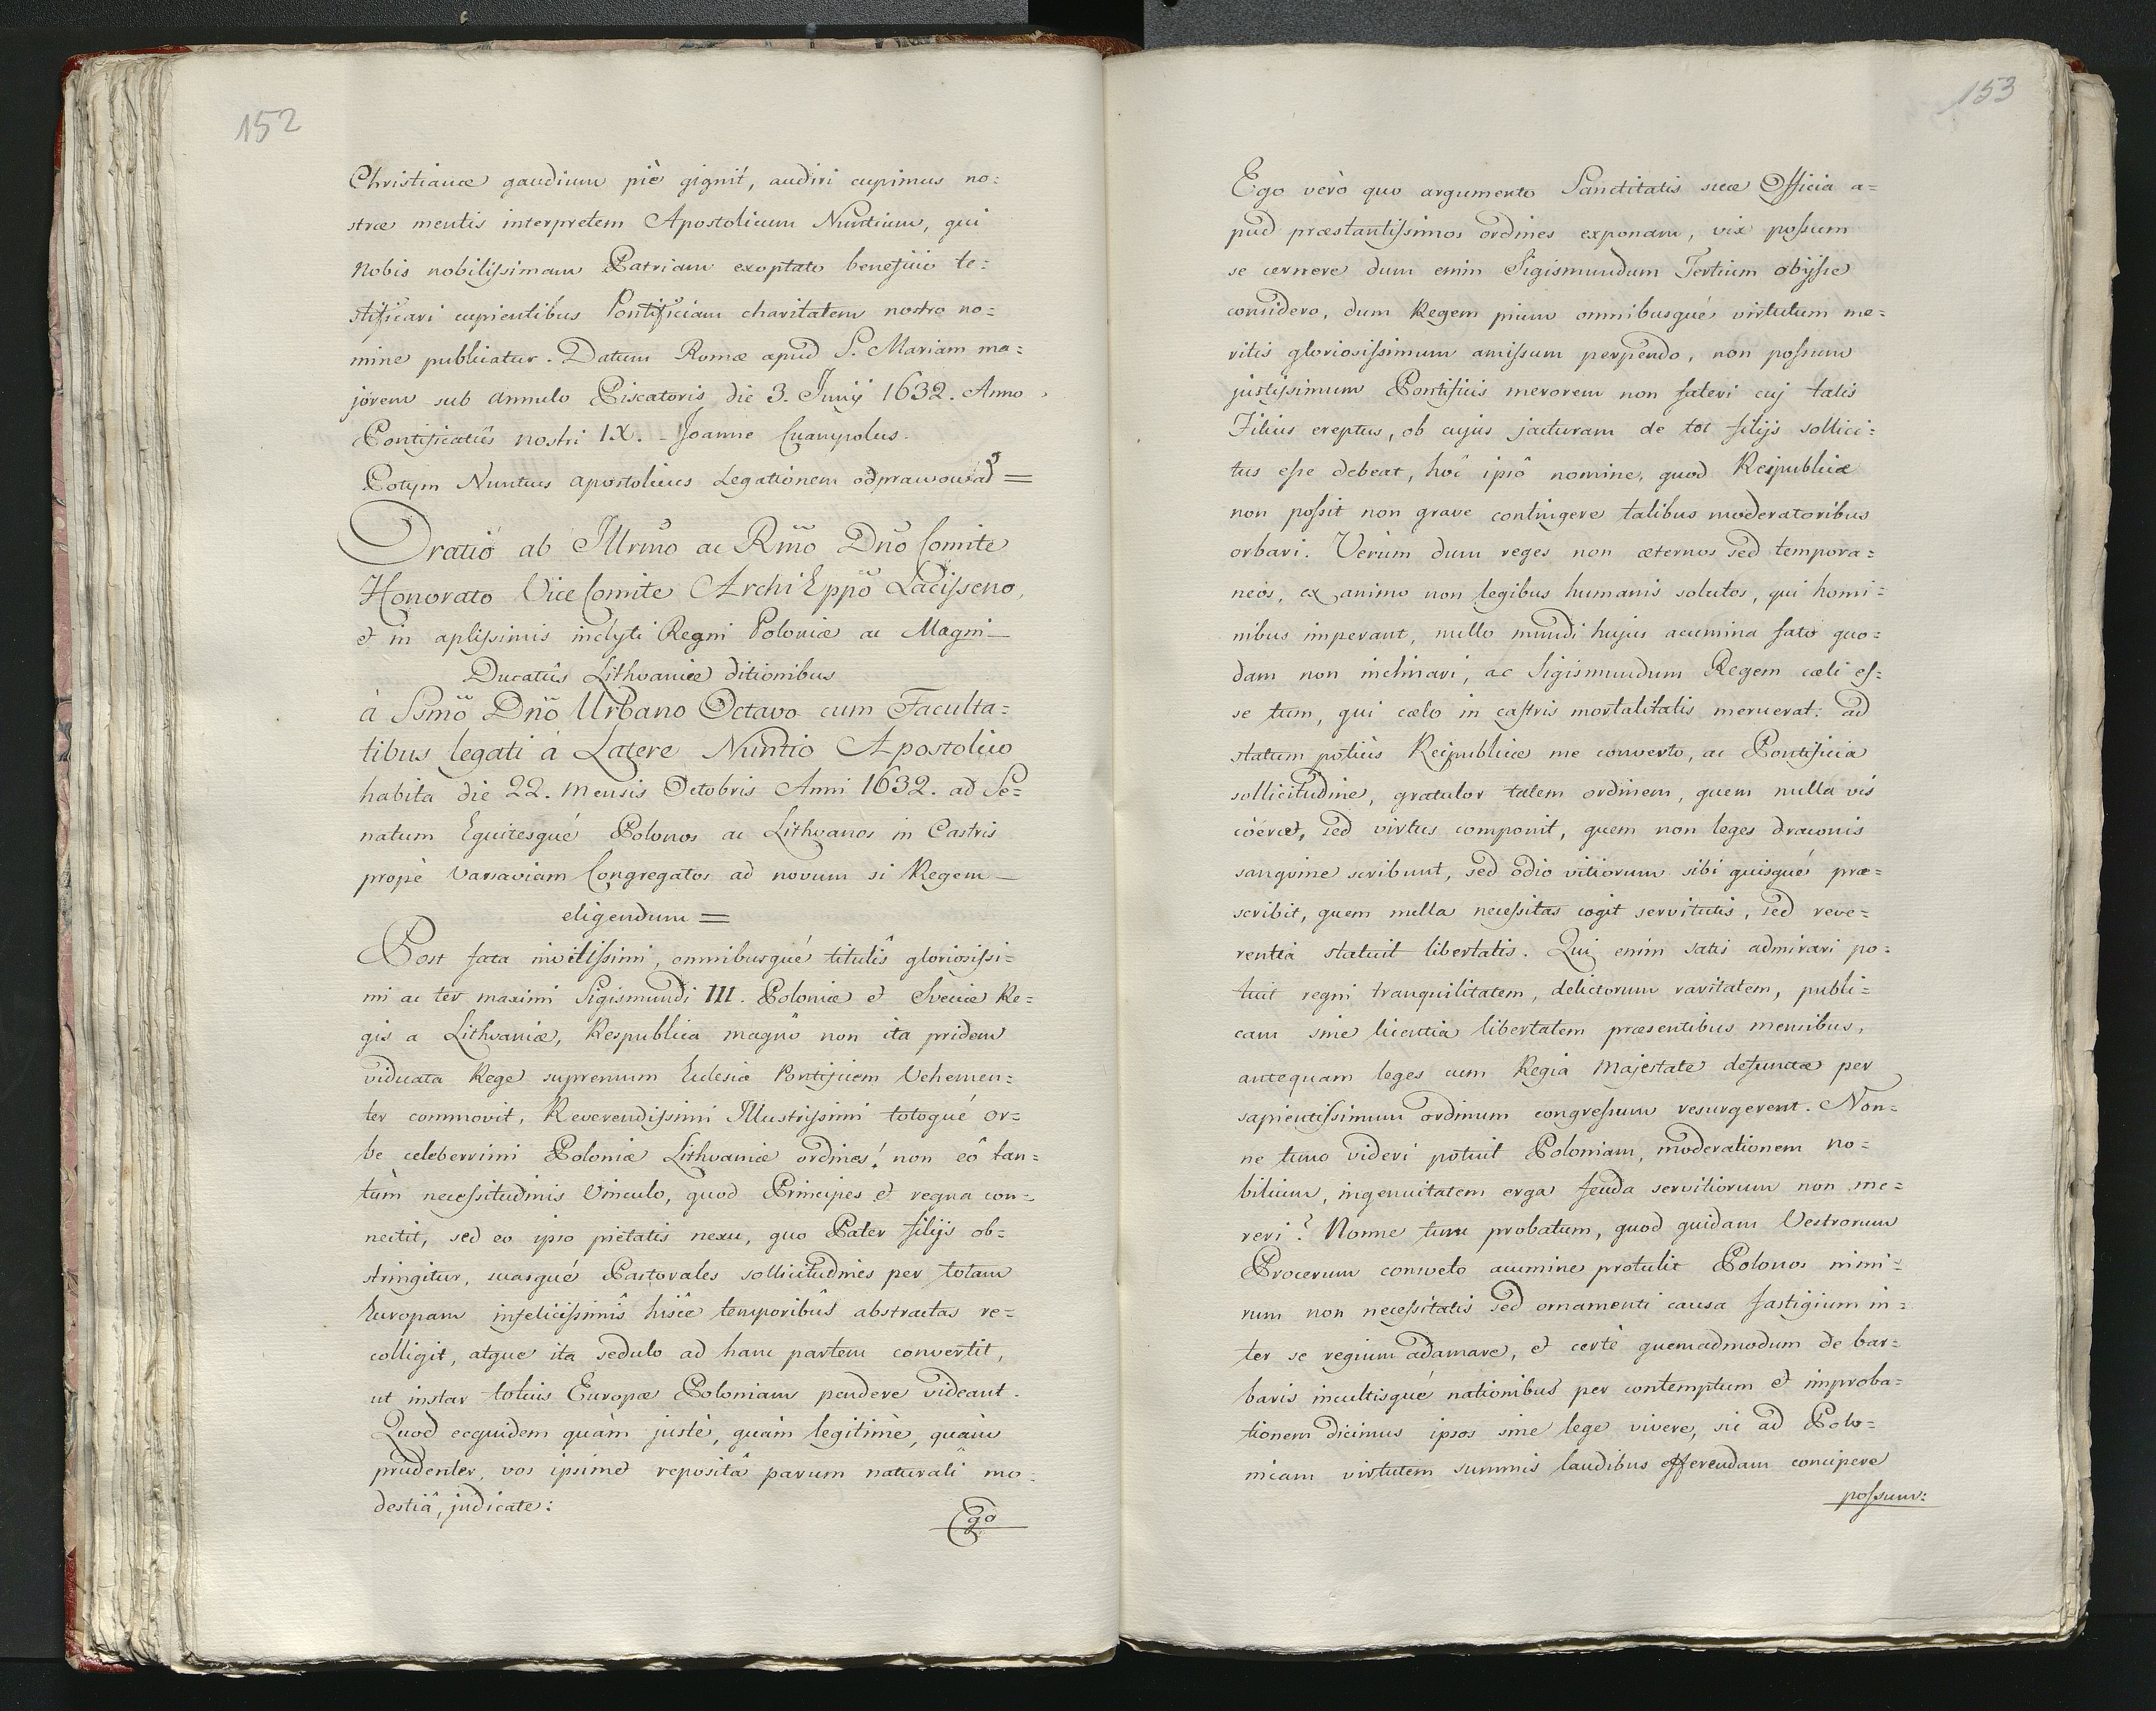 152
Christianæ gaudium piè gignit, audiri cupimus no=
stræ mentis interpretem Apostolicum Nuntium, qui
nobis nobilissimam Patriam exoptato beneficio te=
stificari cupientibus Pontificiam charitatem nostro no=
mine publicatur. Datum Romæ apud S. Mariam ma=
jorem sub annulo Piscatoris die 3. Junij 1632. Anno
Pontificatûs nostri IX. Joanne Ciampolus.
Potym Nuntius apostolicus Legationem odprawował =
Oratio ab Illrmo ac Rmo Dno Comite
Honorato Vice Comite Archi Eppo Ladisseno,
et in aplissimis inclyti Regni Poloniæ ac Magni
Ducatûs Lithvaniæ ditionibus
à Ssmo Dno Urbano Octavo cum Faculta=
tibus legati à Latere Nuntio Apostolico
habita die 22. mensis Octobris Anni 1632. ad Se=
natum Equitesqué Polonos ac Lithvanos in Castris
propè Varsaviam Congregatos ad novum si Regem
eligendum =
Post fata invictissimi, omnibusqué titulis gloriosissi=
mi ac ter maximi Sigismundi III. Poloniæ et Sveciæ Re=
gis a Lithvaniæ, Respublica magnô non ita pridem
viduata Rege supremum Eclesiæ Pontificem Vehemen=
ter commovit, Reverendissimi Illustrissimi totoqué or=
be celeberrimi Poloniæ Lithvaniæ ordines! non eô tan=
tùm necessitudinis Vinculo, quod Principes et regna con=
nectit, sed eo ipso pietatis nexu, quo Pater filijs ob=
stringitur, suasqué Pastorales sollicitudines per totam
Europam infelicissimis hisce temporibûs abstractas re=
colligit, atque ita sedulo ad hanc partem convertit,
ut instar totius Europæ Poloniam pendere videant.
Quod ecquidem quàm justè, quàm legitimè, quàm
prudenter, vos ipsimet repositâ parum naturali mo=
destiâ, judicate:
Ego
153
Ego verò quo argumento Sanctitatis suæ Officia a=
pud præstantissimos ordines exponam, vix possum
se cernere dum enim Sigismundum Tertium obijsse
considero, dum Regem pium omnibusqué virtutum me=
ritis gloriosissimum amissum perpendo, non possum
justissimum Pontificis merorem non fateri cuj talis
Filius ereptus, ob cujus jacturam de tot filijs sollici=
tus esse debeat, hoc ipsô nomine, quod Reipublicæ
non possit non grave contingere talibus moderatoribus
orbari. Verùm dum reges non æternos sed tempora=
neos, ex animo non legibus humanis solutos, qui homi=
nibus imperant, nullo mundi hujus acumina fato quo=
dam non inclinari, ac Sigismundum Regem cæli es=
se tum, qui cælo in castris mortalitatis meruerat: ad
statum potiùs Reipublicæ me converto, ac Pontificia
sollicitudine, gratulor talem ordinem, quem nulla vis
coërcet, sed virtus componit, quem non leges draconis
sanguine scribunt, sed odio vitiorum sibi quisqué præ=
scribit, quem nulla necessitas cogit servitutis, sed reve=
rentia statuit libertatis. Qui enim satis admirari po=
tuit regni tranquilitatem, delictorum raritatem, publi=
cam sine licentia libertatem præsentibus mensibus,
antequam leges cum Regia Majestate defunctæ per
sapientissimum ordinum congressum resurgerent. Non=
ne tunc videri potuit Poloniam, moderationem no=
bilium, ingenuitatem erga feuda servitiorum non me=
reri? Nonne tunc probatum, quod quidam Vestrorum
Procerum consueto acumine protulit Polonos nimi=
rum non necessitatis sed ornamenti causa fastigium in=
ter se regium adamare, et certè quemadmodum de bar=
baris incultisqué nationibus per contemptum et improba=
tionem dicimus ipsos sine lege vivere, sic ad Polo=
nicam virtutem summis laudibus efferendam concipere
possum: